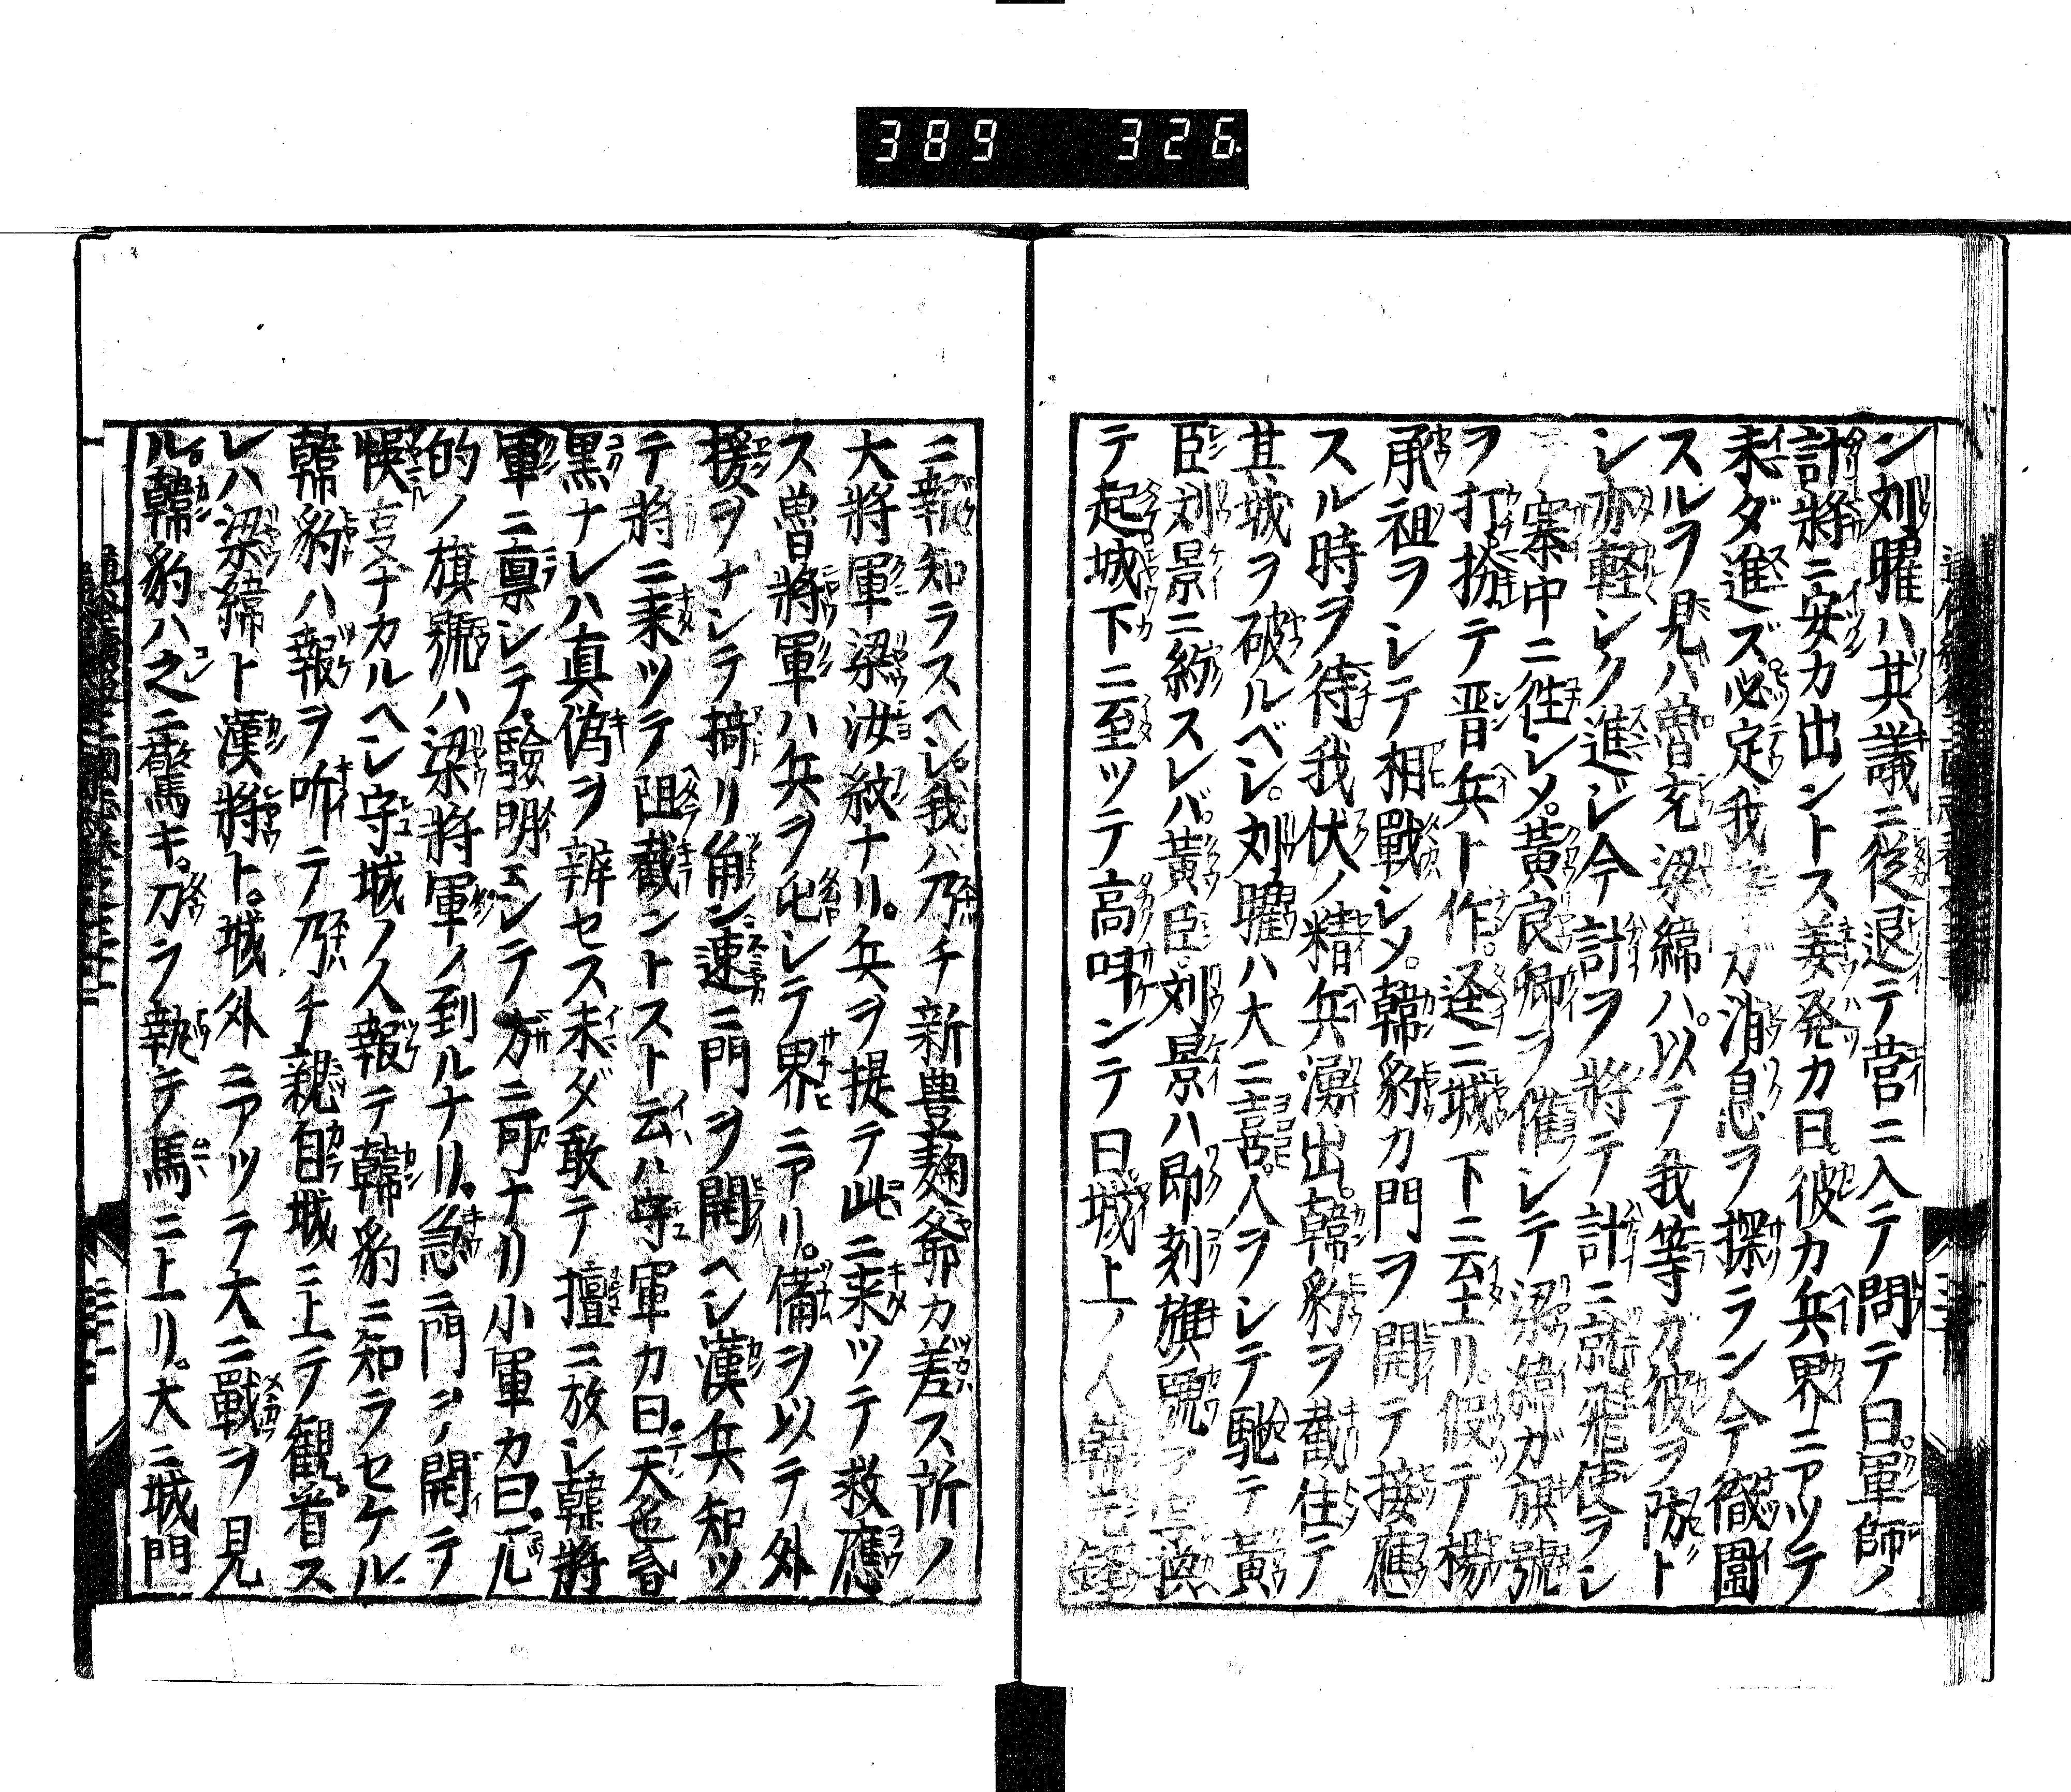 389 326.
ン劉曜ハ其議ニ從退テ営ニ入テ問テ曰。軍師ノ
計將ニ安カ出ントス姜発カ曰彼カ兵界ニアツテ
未ダ進ズ。必定我 ガ消息ヲ探ラン今徹圍
スルヲ見ハ曽充梁緯ハ。以テ我等カ彼ヲ防ト
シ亦軽シク進ジ今計ヲ將テ計ニ就飛使ヲシ
テ寨中ニ徃シメ。黄良卿ヲ催シテ梁緯ガ旗號
ヲ打。扮テ晋兵ト作。逕ニ城下ニ至リ。假テ楊
承祖ヲシテ相戰シメ。韓豹カ門ヲ開テ接應
スル時ヲ待我伏ノ精兵湧出。韓豹ヲ截住テ
其城ヲ破ルベシ。刘曜ハ大ニ喜。人ヲシテ馳テ黄
臣刘景ニ約スレバ。黄臣。刘景ハ即刻旗號ヲ
テ起城下ニ至ツテ高呌ンテ曰。城上ノ人
ニ報知ラスヘシ我ハ乃チ新豊麹爺カ差ス所ノ
大將軍梁汝紋ナリ。兵ヲ提テ此ニ来ツテ救應
ス曽將軍ハ兵ヲ屯シテ界ニアリ。備ヲ以テ外
援ヲナシテ掎リ角ン速ニ門ヲ開ヘシ漢兵知ツ
テ將ニ来ツテ阻截ントスト云ハ守軍カ曰。天色昏
黒ナレハ真偽ヲ辨セス未ダ敢テ擅ニ放シ韓將
軍ニ禀シテ。驗明ニシテ方ニ可ナリ小軍カ曰。兀
的ノ旗號ハ梁將軍ノ到ルナリ。急ニ門ヲ開テ
悞事ナカルヘシ守城ノ人報テ韓豹ニ知ラセケル
韓豹ハ報ヲ听テ乃チ親自城ニ上テ観着ス
レハ梁緯ト漢將ト。城外ニアツテ大ニ戰ヲ見
ル。韓豹ハ之ニ驚キ。刀ヲ執テ馬ニ上リ。大ニ城門